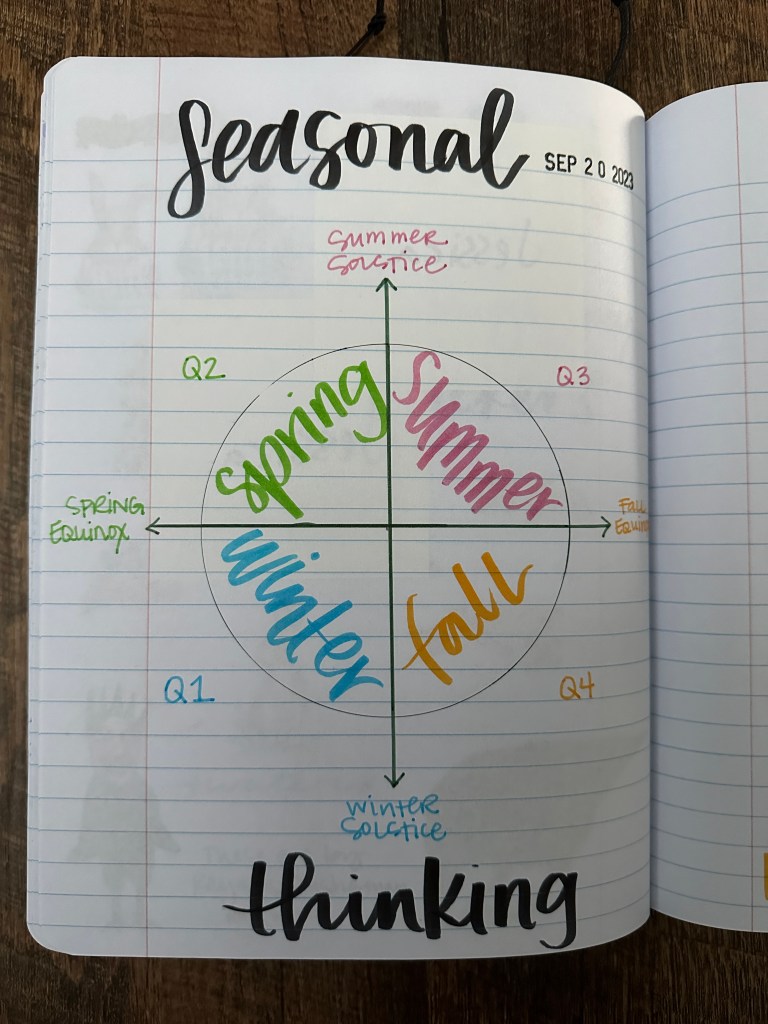 Seasonal
SEP 20 2023
Summer
Solstice
Q2
Q3
Spring
Summer
SPRING
Equinox
Fall
Equinox
Winter
fall
Q1
Q4
Winter
Solstice
thinking